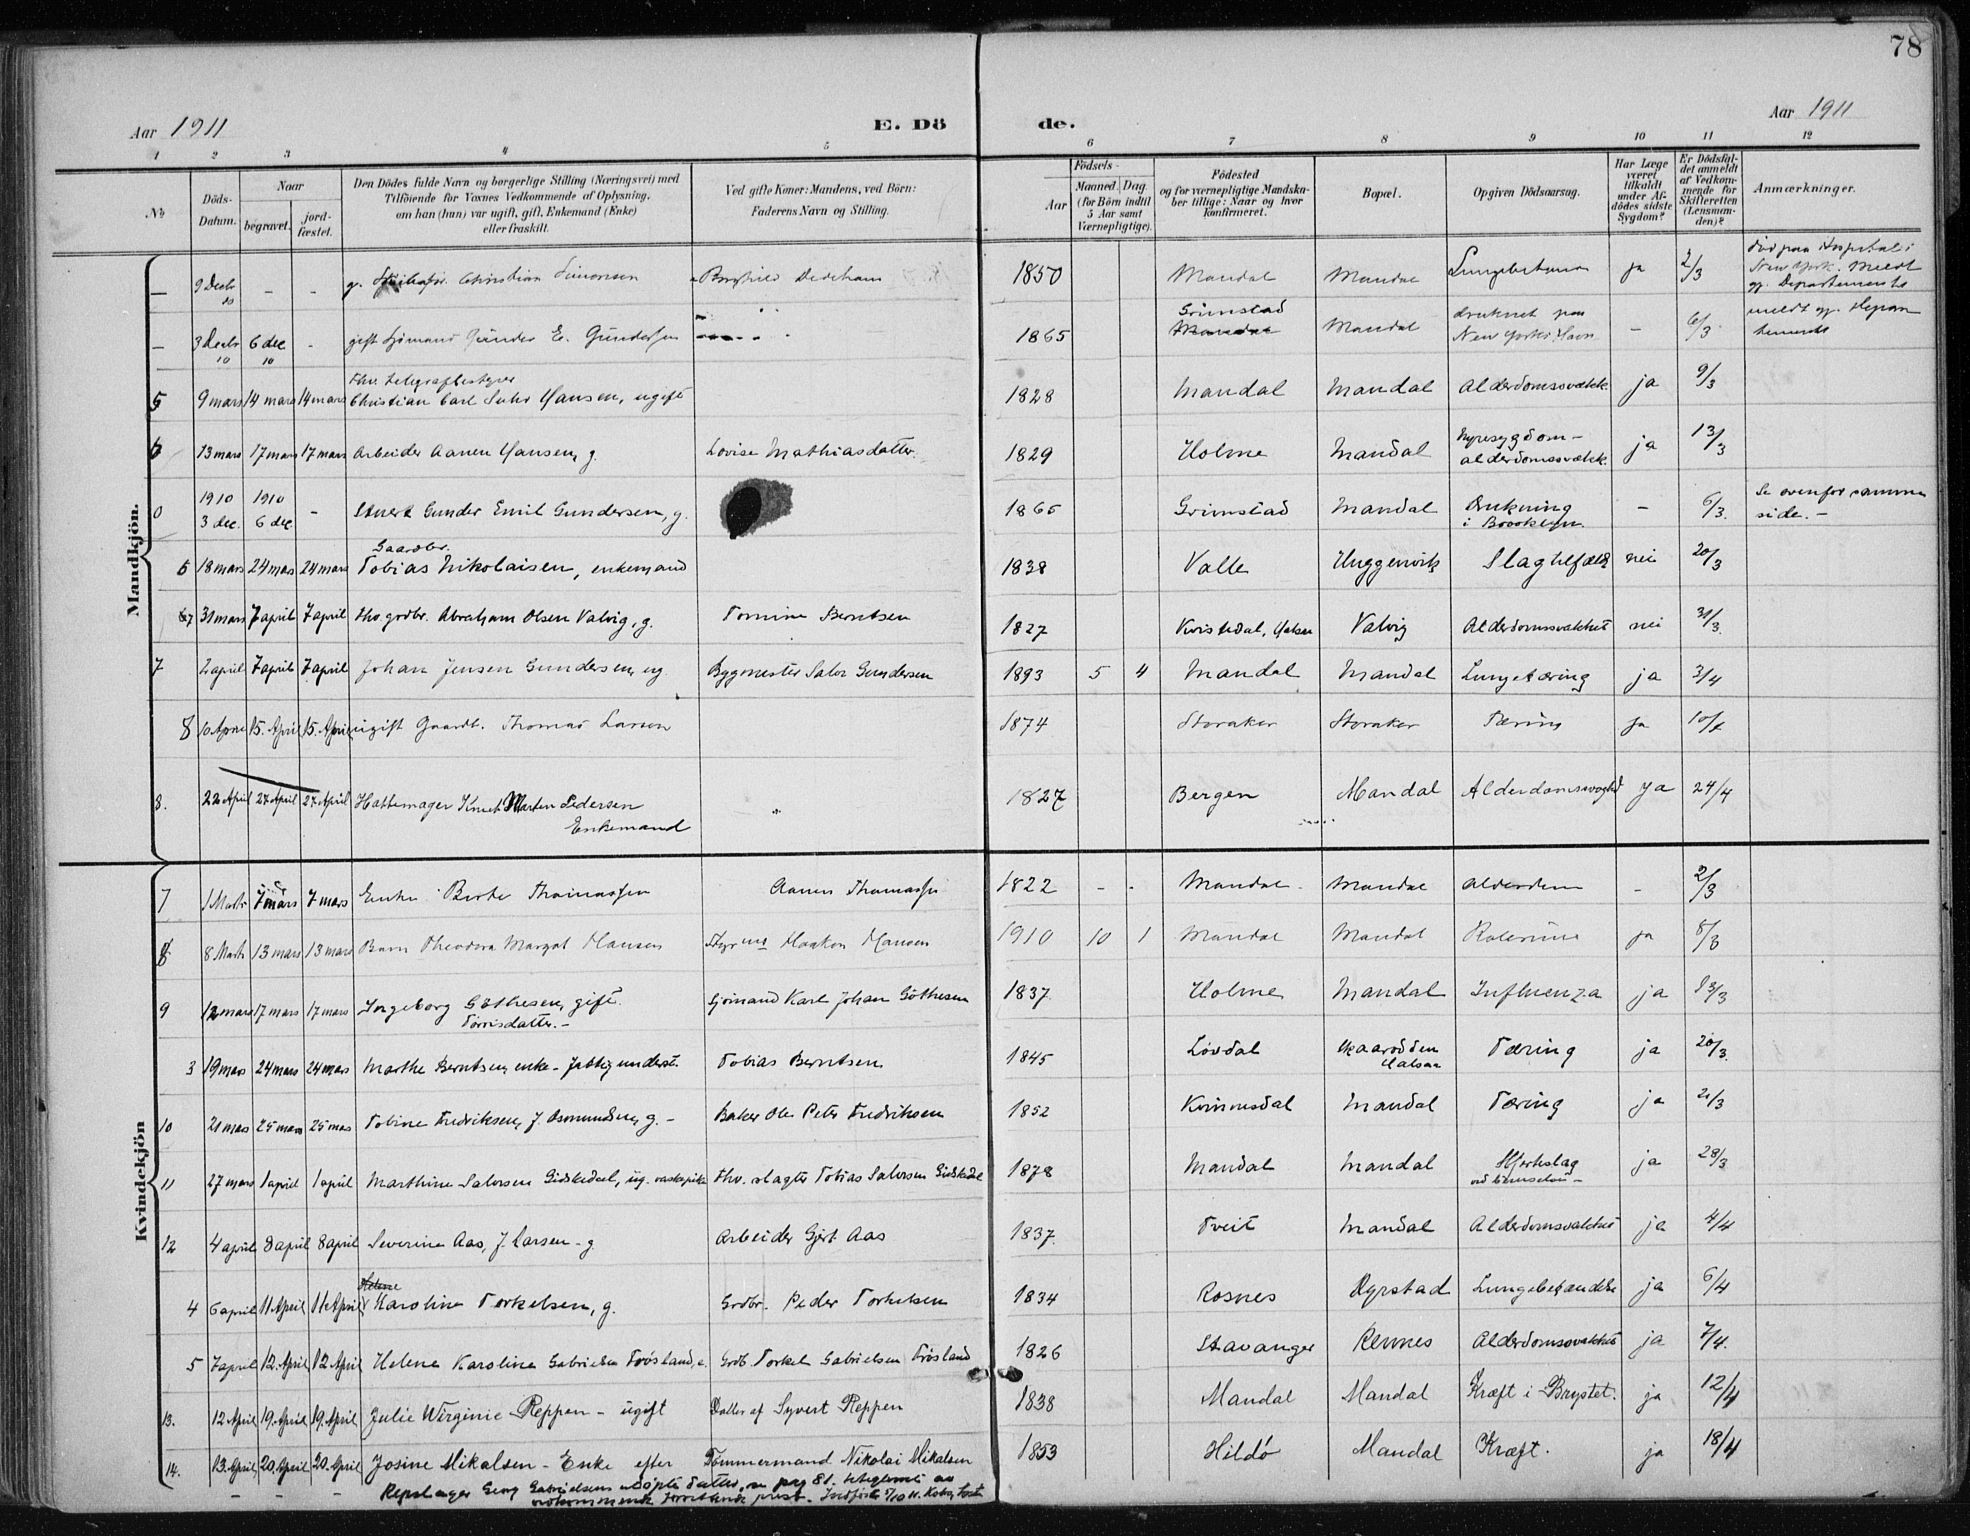 78
Aar 1911
E. Dö
de.
Aar 1911
1 2 3 4 5 6 7 8 9 10 11 12
No
Döds-Datum.
Naar
begravet.
jord-fæstet.
Den Dödes fulde Navn og borgerlige Stilling (Næringsvei) med
Tilföiende for Voxnes Vedkommende af Oplysning,
om han (hun) var ugift, gift, Enkemand (Enke)
eller fraskilt.
Ved gifte Koner: Mandens, ved Börn:
Faderens Navn og Stilling.
Födsels-
Aar
Maaned. Dag.
(for Börn indtil
5 Aar samt
Værnepligtige).
Födested
og for værnepligtige Mandska-
ber tillige: Naar og hvor
konfirmeret.
Bopæl.
Opgiven Dödsaarsag.
Har Læge
været
tilkaldt
under Af-
dödes sidste
Sygdom?
Er Dödsfal-
det anmeldt
af Vedkom-
mende for
Skifteretten
(Lensman-
den)?
Anmærkninger.
Mandkjön.
— 9 Decbr 10 - - g. Christian Simonsen Borghild Dedekam 1850 Mandal Mandal ja 2/3 død paa Hospital i
New York. Meldt
gj. Departementet
— 3 Decbr 10 6 dec 10 - gift Sjömand Gunder E. Gundersen 1865 Grimstad Mandal Mandal druknet paa
New Yorks Havn - 6/3 meldt gj. Departementet
5 9 mars 14 mars 14 mars Fhv. telegrafbestyrer
Christian Carl Suhr Hansen, ugift 1828 Mandal Mandal Alderdomssvækk. ja 9/3
6 13 mars 17 mars 17 mars Arbeider Aanen Hansen, g. Lovise Mathiasdatter. 1829 Holme Mandal Nyresygdom-
alderdomssvækk. ja 13/3
0 1910 3 dec. 1910 6 dec. - Gunder Emil Gundersen, g. 1865 Grimstad Mandal Drukning
i Brooklyn. - 6/3. Se ovenfor samme
side. -
5 18 mars 24 mars 24 mars Gaardbr.
Tobias Nikolaisen, enkemand 1838 Valle Slagtilfælde nei 20/3
7 31 mars 7 april 7 april fhv. grdbr. Abraham Olsen Valvig, g. Tomine Berntsen 1827 Valvig Alderdomssvakhet nei 31/3.
7 2 april 7 april 7 april Johan Jensen Gundersen, ug. Bygmester Salov Gundersen 1893 5 4 Mandal Mandal Lungetæring ja 3/4
8 10 April 15. April 15. April ugift Gaardb. Thomas Larsen 1874 Storaker Storaker Tæring ja 10/4
8. 22 April 27 April 27 April Hattemager Knut Marten Pedersen
Enkemand " 1827 Bergen Mandal Alderdomssvaghed ja 24/4
Kvindekjön
7 1 Marts 7 mars 7 mars Enke Berte Thomassen Aanen Thomassen 1822 - - Mandal - Mandal Alderdom - 2/3
8 8 Marts 13 mars 13 mars Barn Theodora Margot Hansen Styrmd Haakon Hansen 1910 10 1 Mandal Mandal Kolerine ja 8/3
9 12 mars 17 mars 17 mars Ingeborg Göthesen, gift.
Torrisdatter.- Sjömand Karl Johan Göthesen 1837 Holme Mandal Influenza ja 13/3
3 19 mars 24 mars 24 mars Marthe Berntsen, enke - fattigunderst. Tobias Berntsen 1845 Lovdal Skaarodden
Halsaa Tæring ja 20/3.
10 21 mars 25 mars 25 mars Tobine Fredriksen, f. Osmundsen, g. - Baker Ole Peter Fredriksen 1852 Kvinesdal Mandal Tæring ja 21/3
11 27 mars 1 april 1 april Marthine Salvesen Gidskedal, ug. vaskepike Fhv. slagter Tobias Salvesen Gidskedal 1878 Mandal Mandal Hjerteslag ja 28/3
12 4 april 8 april 8 april Severine Aas, f. Larsen - g. Arbeider Gjert Aas 1837. Tveit Mandal Alderdomssvakhet ja 4/4
4 6 april 11. April 11. April Helene
Karoline Torkelsen, g. Grdbr. Peder Torkelsen 1834 Rosnes Dyrstad Lungebetændelse ja 6/4
5 7 april 12. April 12. April Helene Karoline Gabrielsen Frösland, e. Grdb. Torkel Gabrielsen Frösland 1826 Stavanger Rennes Alderdomssvakhet ja 7/4.
13. 12 April 19. April 19. April Julie Wirginie Reppen - ugift Datter af Syvert Reppen 1838 Mandal Mandal Kræft i Brystet. ja 12/4
14. 13. April 20. April 20. April Josine Mikalsen - Enke efter Tömmermand Nikolai Mikalsen 1853 Hildö Mandal Kræft. ja 18/4
- - - Repslager Georg Gabrielsens udöpte datter, se pag 81.
vedkommende forrettende prest. Indfört 5/10 11.